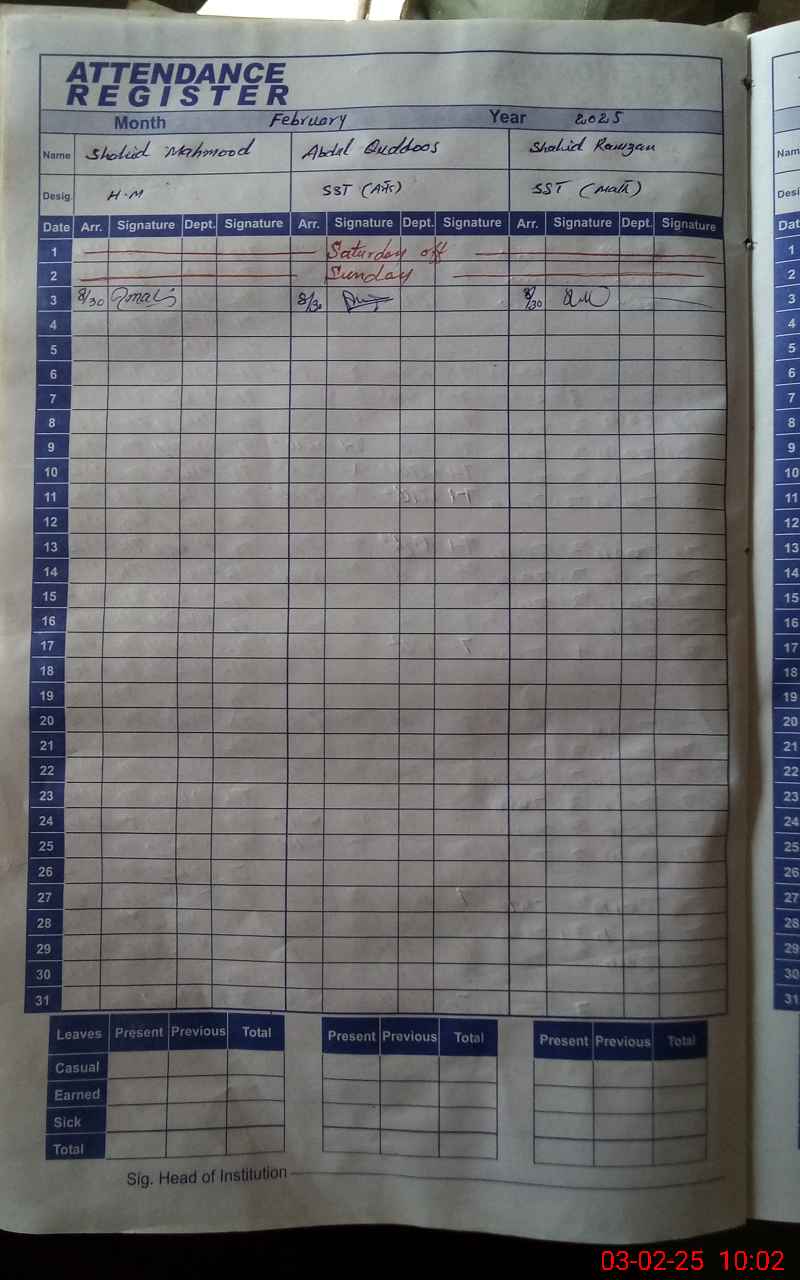 ATTENDANCE
REGISTER
Month February Year 2025
Name Shahid Mahmood Abdul Quddoos Shahid Ramzan
Desig. H.M SST (Arts) SST (Math)
Date Arr. Signature Dept. Signature Arr. Signature Dept. Signature Arr. Signature Dept. Signature
1 Saturday off
2 Sunday
3 8/30 8/30 8/30
4
5
6
7
8
9
10
11
12
13
14
15
16
17
18
19
20
21
22
23
24
25
26
27
28
29
30
31
Leaves Present Previous Total Present Previous Total Present Previous Total
Casual
Earned
Sick
Total
Sig. Head of Institution
Nam
Desi
Dat
1
2
3
4
5
6
7
8
9
10
11
12
13
14
15
16
17
18
19
20
21
22
23
24
25
26
27
28
29
30
31
03-02-25 10:02